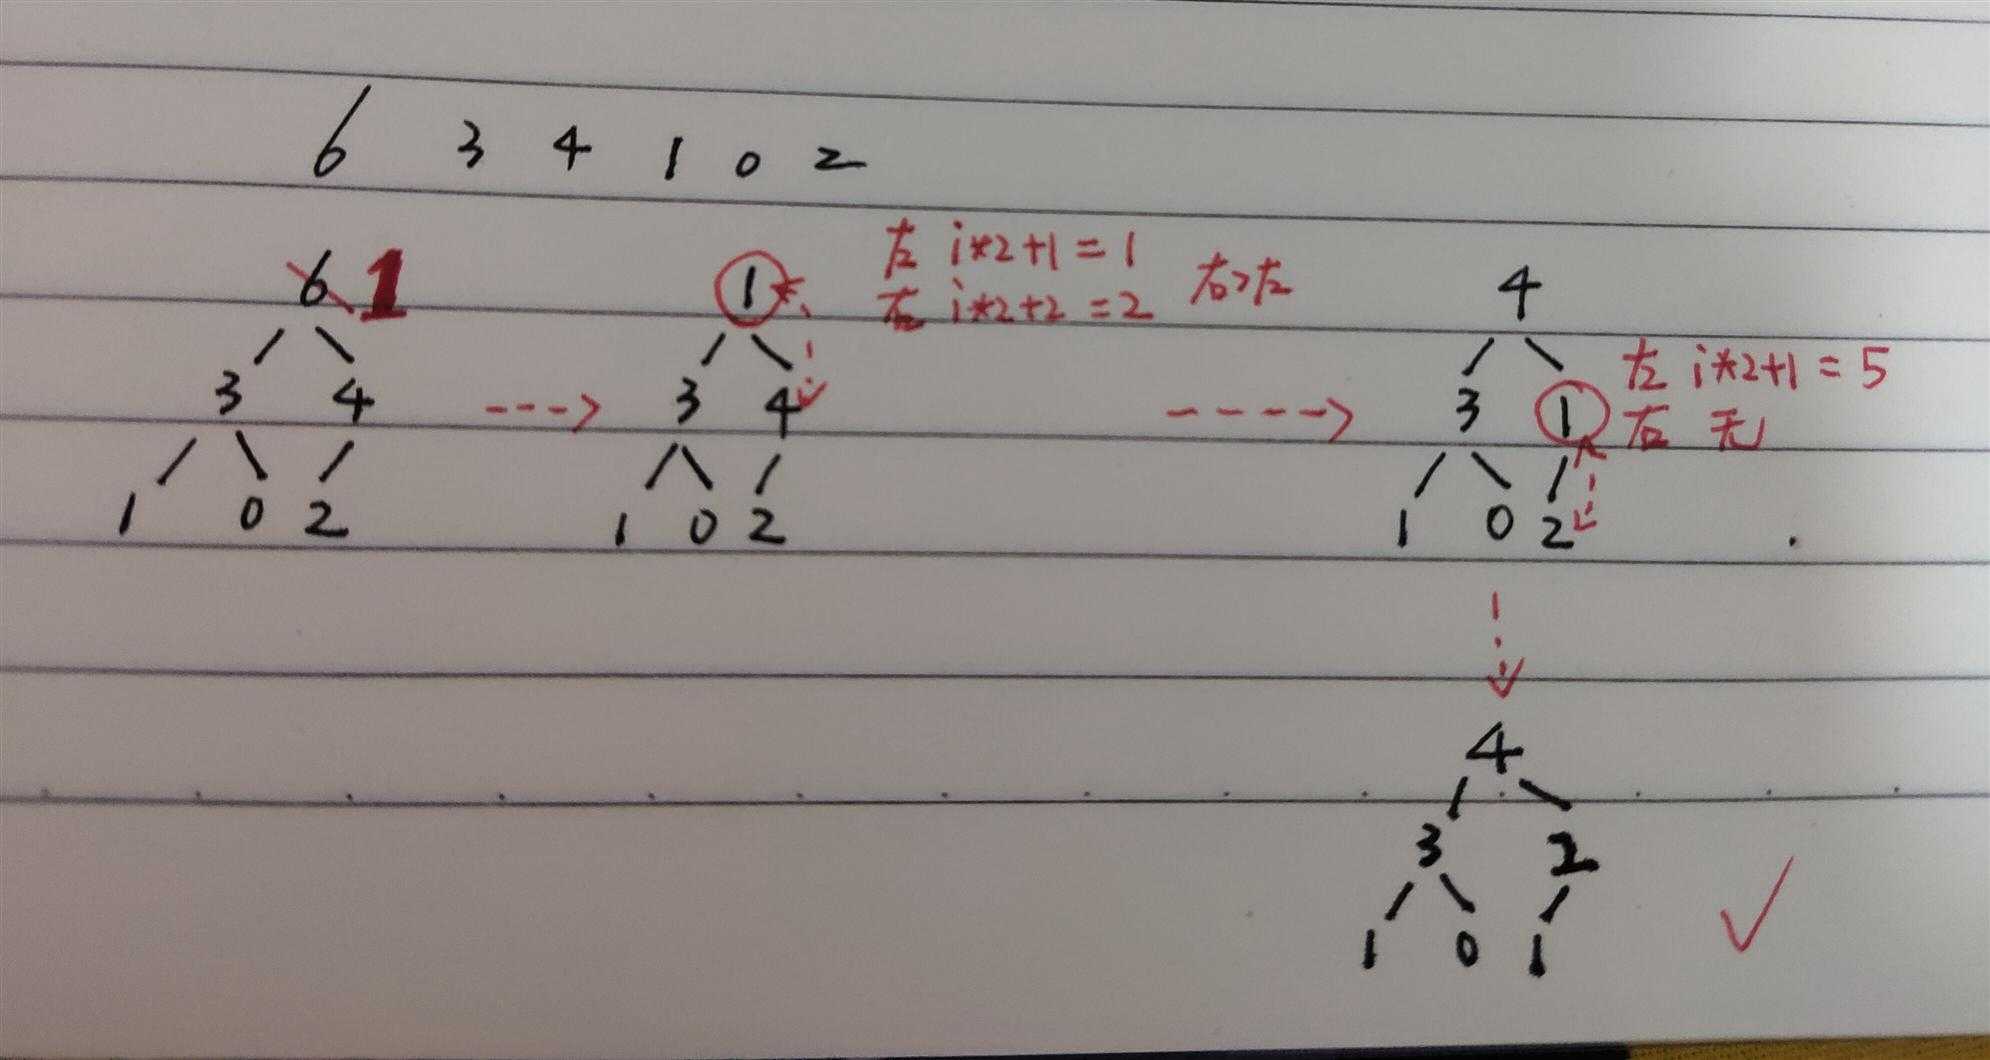 6 3 4 1 0 2
6 1
3 4
1 0 2
1
3 4
1 0 2
左 i*2+1 = 1
右 i*2+2 = 2
右>左
4
3 1
1 0 2
左 i*2+1 = 5
右 无
4
3 2
1 0 1